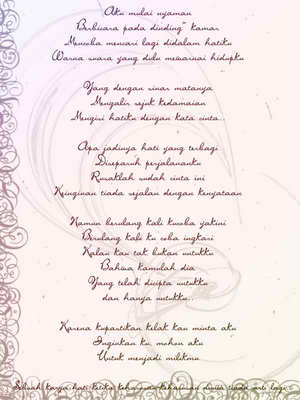 Aku mulai nyaman
Berbicara pada dinding" kamar
Mencoba mencari lagi didalam hatiku
Warna suara yang dulu mewarnai hidupku
Yang dengan sinar matanya
Mengalir sejuk kedamaian
Mengisi hatiku dengan kata cinta..
Apa jadinya hati yang terbagi
Diseparuh perjalananku
Rusaklah sudah cinta ini
Keinginan tiada sejalan dengan kenyataan
Namun berulang kali kucoba yakini
Berulang kali ku coba ingkari
Kalau kau tak bukan untukku
Bahwa kamulah dia
Yang telah dicipta untukku
dan hanya untukku..
Karena kupastikan kelak kau minta aku
Inginkan ku, mohon aku
Untuk menjadi milikmu
Sebuah karya hati ketika dunia tiada arti lagi